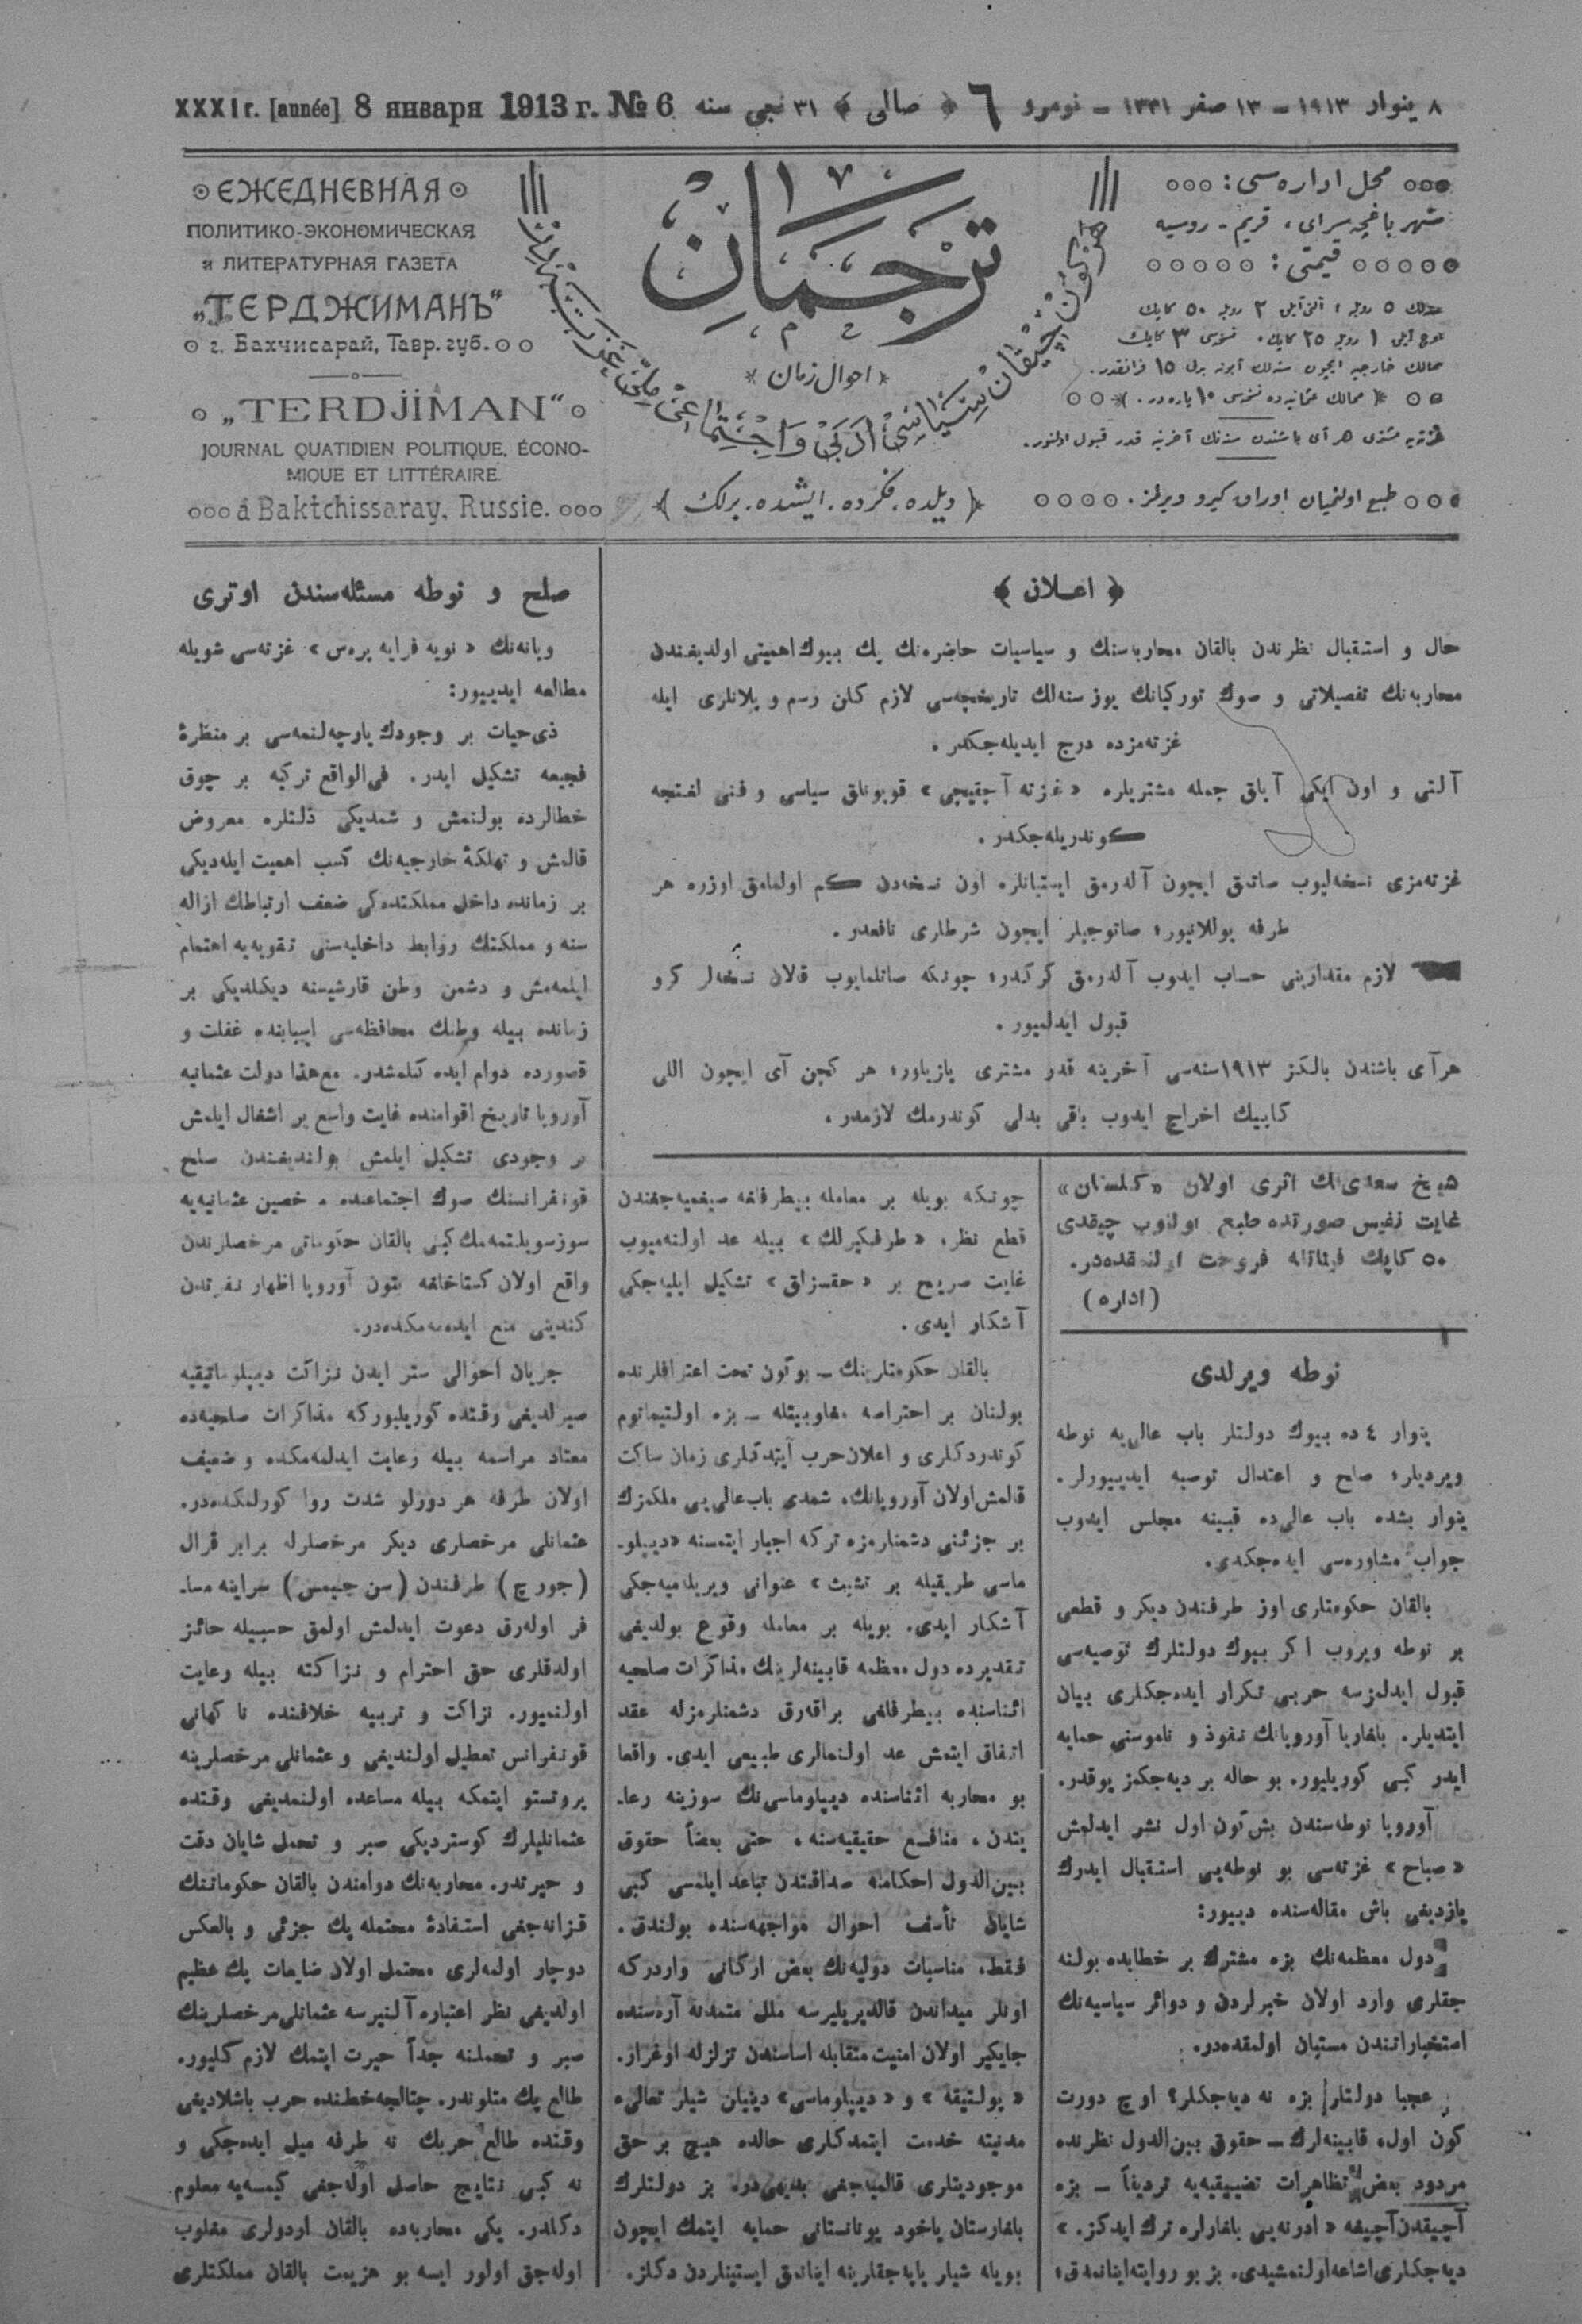 XXXI г. [année] 8 января 1913 г. № 6
٨ ینوار ١٩١٣ ـ ١٣ صفر ١٣٣١ ـ نومرو ٦ ﴿ صالی ﴾ ٣١ نجی سنه
ЕЖЕДНЕВНАЯ
ПОЛИТИКО-ЭКОНОМИЧЕСКАЯ
и ЛИТЕРАТУРНАЯ ГАЗЕТА
„ТЕРДЖИМАНЪ“
г. Бахчисарай, Тавр. губ.
„TERDJİMAN“
JOURNAL QUATIDIEN POLITIQUE, ÉCONO-
MIQUE ET LITTÉRAIRE.
á Baktchissaray, Russie.
ترجمان
احوال زمان
﴿ دیلده . فکرده . ایشده . برلك ﴾
محل اداره‌سی :
شهر باغچه‌سرای ، قریم ـ روسیه
قیمتی :
سنه‌لك ٥ روبله ؛ آلتی آیلق ٣ روبله ٥٠ کاپیك
طبع اولنمیان اوراق کیرو ویرلمز .
﴿ اعلان ﴾
حال و استقبال نظرندن بالقان محاربه‌سنك و سیاسیات حاضره‌نك پك بیوك اهمیتی اولدیغندن
محاربه‌نك تفصیلاتی و صوك تورکیانك یوز سنه‌لك تاریخچه‌سی لازم کلن رسم و پلانلری ایله
غزته‌مزده درج ایدیله‌جکدر .
آلتی و اون ایکی آیلق جمله مشتریلره « غزته آچقیچی » قویوناق سیاسی و فنی لغتچه
کوندریله‌جکدر .
غزته‌مزی نسخه‌لیوب صاتمق ایچون آلدرمق ایستیانلره اون نسخه‌دن کم اولمامق اوزره هر
طرفه یوللانیور ؛ صاتوجیلر ایچون شرطلری نافعدر .
لازم مقدارینی حساب ایدوب آلدرمق کرکدر ؛ چونکه صاتلمایوب قالان نسخه‌لر کرو
قبول ایدلمیور .
هر آی باشندن یالکز ١٩١٣ سنه‌سی آخرینه قدر مشتری یازیلور ؛ هر کچن آی ایچون اللی
کاپیك اخراج ایدوب باقی بدلی کوندرمك لازمدر .
شیخ سعدی‌نك اثری اولان «کلستان»
غایت نفیس صورتده طبع اولنوب چیقدی
٥٠ کاپیك فیئاتله فروخت اولنمقده‌در .
(اداره)
نوطه ویرلدی
ینوار ٤ ده بیوك دولتلر باب عالی‌یه نوطه
ویردیلر ؛ صلح و اعتدال توصیه ایدییورلر .
ینوار بشده باب عالی‌ده قبینه مجلس ایدوب
جواب مشاوره‌سی ایده‌جکدی .
بالقان حکومتلری اوز طرفندن دیکر و قطعی
بر نوطه ویروب اکر بیوك دولتلرك توصیه‌سی
قبول ایدلمزسه حربی تکرار ایده‌جکلری بیان
ایتدیلر . بلغاریا آوروپانك نفوذ و ناموسنی حمایه
ایدر کبی کوریلیور . بو حاله بر دیه‌جکمز یوقدر .
آوروپا نوطه‌سندن بش کون اول نشر ایدلمش
« صباح » غزته‌سی بو نوطه‌یی استقبال ایدرك
یازدیغی باش مقاله‌سنده دییور :
دول معظمه‌نك بزه مشترك بر خطابده بولنه
جقلری وارد اولان خبرلردن و دوائر سیاسیه‌نك
استخباراتندن مستبان اولمقده‌در .
عجبا دولتلر بزه نه دیه‌جکلر ؟ اوچ دورت
کون اول ، قابینه‌لرك ـ حقوق بین‌الدول نظرنده
مردود بعض تظاهرات تضییقیه‌یه تردیفاً ـ بزه
آچیقدن آچیغه « ادرنه‌یی بلغارلره ترك ایدکز . »
دیه‌جکلری اشاعه اولنمشیدی . بز بو روایته اینانمدق ؛
چونکه بویله بر معامله بیطرفلغه صیغمیه‌جغندن
قطع نظر ، « طرفکیرلك » بیله عد اولنه‌میوب
غایت صریح بر « حقسزلق » تشکیل ایلیه‌جکی
آشکار ایدی .
بالقان حکومتلرینك ـ بوکون تحت اعترافلرنده
بولنان بر احتراصه مغلوبیتله ـ بزه اولتیماتوم
کوندردکلری و اعلان حرب ایتدکلری زمان ساکت
قالمش اولان آوروپانك ، شمدی باب عالی‌یی ملکمزك
بر جزئنی دشمنلرمزه ترکه اجبار ایتمسنه «دیپلو-
ماسی طریقیله بر تشبث» عنوانی ویریله‌میه‌جکی
آشکار ایدی . بویله بر معامله وقوع بولدیغی
تقدیرده دول معظمه قابینه‌لرینك مذاکرات صلحیه
اثناسنده بیطرفلغی براقه‌رق دشمنلرمزله عقد
اتفاق ایتمش عد اولنمالری طبیعی ایدی . واقعا
بو محاربه اثناسنده دیپلوماسی‌نك سوزینه رعا-
یتدن ، منافع حقیقیه‌سنه ، حتی بعضاً حقوق
بین‌الدول احکامنه صداقتدن تباعد ایلمسی کبی
شایان تأسف احوال مواجهه‌سنده بولندق .
فقط ، مناسبات دولیه‌نك بعض ارکانی واردرکه
اونلر میداندن قالدیریلیرسه ملل متمدنه آره‌سنده
جایکیر اولان امنیت متقابله اساسندن تزلزله اوغرار .
« پولتیقه » و « دیپلوماسی » دینیان شیلر تعالیء
مدنیته خدمت ایتمدکلری حالده هیچ بر حق
موجودیتلری قالمیه‌جغی بدیهی‌در . بز دولتلرك
بلغارستان یاخود یونانستانی حمایه ایتمك ایچون
بویله شیلر یاپه‌جقلرینه اینانمق ایستینلردن دکلز .
صلح و نوطه مسئله‌سندن اوتری
ویانه‌نك « نویه فرایه پره‌س » غزته‌سی شویله
مطالعه ایدییور :
ذی‌حیات بر وجودك پارچه‌لنمه‌سی بر منظرۀ
فجیعه تشکیل ایدر . فی‌الواقع ترکیه بر چوق
خطالرده بولنمش و شمدیکی ذلتلره معروض
قالمش و تهلکۀ خارجیه‌نك کسب اهمیت ایله‌دیکی
بر زمانده داخل مملکتده‌کی ضعف ارتباطك ازاله
سنه و مملکتك روابط داخلیه‌سنی تقویه‌یه اهتمام
ایلمه‌مش و دشمن وطن قارشیسنه دیکلدیکی بر
زمانده بیله وطنك محافظه‌سی اسبابنده غفلت و
قصورده دوام ایده کلمشدر . مع‌هذا دولت عثمانیه
آوروپا تاریخ اقوامنده غایت واسع یر اشغال ایلمش
بر وجودی تشکیل ایلمش بولندیغندن صلح
قونفرانسنك صوك اجتماعنده مرخصین عثمانیه‌یه
سوز سویلتمه‌مك کبی بالقان حکوماتی مرخصلرندن
واقع اولان کستاخلغه بتون آوروپا اظهار نفرتدن
کندینی منع ایده‌مه‌مکده‌در .
جریان احوالی ستر ایدن نزاکت دیپلوماتیقیه
صیرلدیغی وقتده کوریلیورکه مذاکرات صلحیه‌ده
معتاد مراسمه بیله رعایت ایدلمه‌مکده و ضعیف
اولان طرفه هر دورلو شدت روا کورلمکده‌در .
عثمانلی مرخصلری دیکر مرخصلرله برابر قرال
(جورج) طرفندن (سن جیمس) سراینه مسا-
فر اوله‌رق دعوت ایدلمش اولمق حسبیله حائز
اولدقلری حق احترام و نزاکته بیله رعایت
اولنمیور . نزاکت و تربیه خلافنده ناکهانی
قونفرانس تعطیل اولندیغی و عثمانلی مرخصلرینه
پروتستو ایتمکه بیله مساعده اولنمدیغی وقتده
عثمانلیلرك کوستردیکی صبر و تحمل شایان دقت
و حیرتدر . محاربه‌نك دوامندن بالقان حکوماتنك
قزانه‌جغی استفادۀ محتمله پك جزئی و بالعکس
دوچار اولمه‌لری محتمل اولان ضایعات پك عظیم
اولدیغی نظر اعتباره آلنیرسه عثمانلی مرخصلرینك
صبر و تحملنه جداً حیرت ایتمك لازم کلیور .
طالع پك متلوندر . چتالجه خطنده حرب باشلادیغی
وقتده طالع حربك نه طرفه میل ایده‌جکی و
نه کبی نتایج حاصل اوله‌جغی کیمسه‌یه معلوم
دکلدر . یکی محاربه‌ده بالقان اردولری مغلوب
اوله‌جق اولور ایسه بو هزیمت بالقان مملکتلری